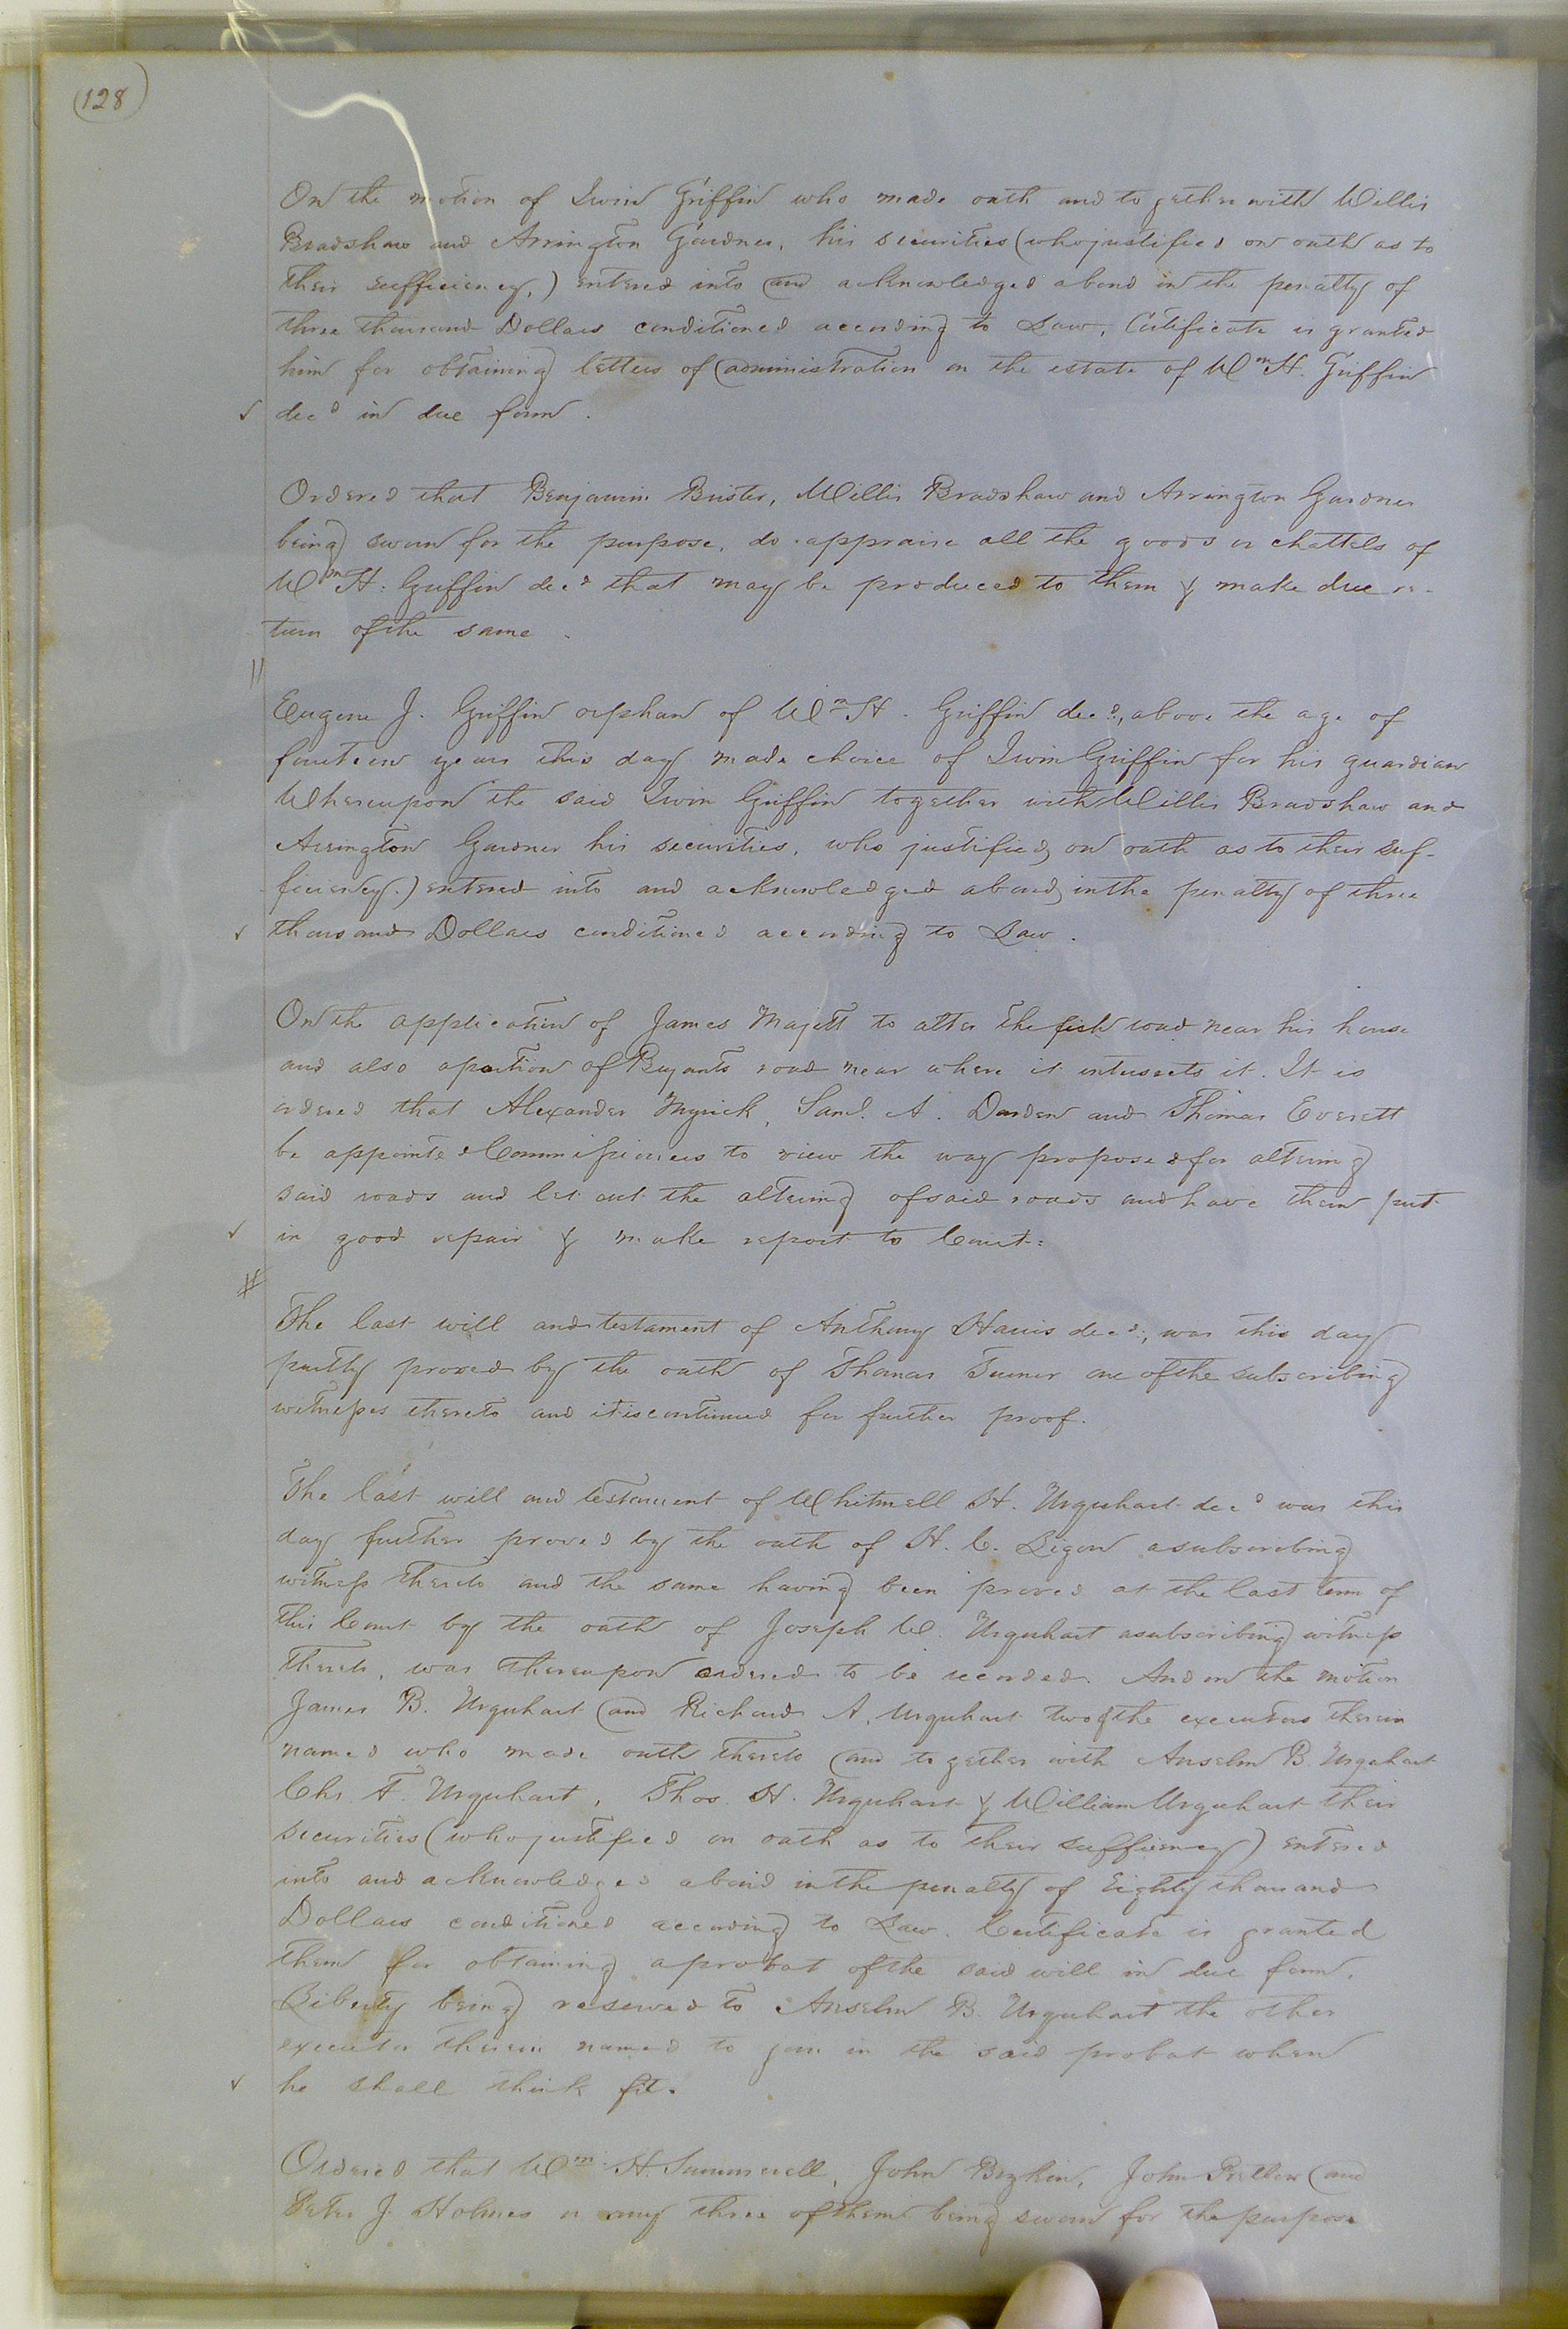 (128)
On the motion of Irvin Griffin who made oath and together with Willis
Bradshaw and Arrington Gardner, his securities (who justified on oath as to
their sufficiency,) entered into and acknowledged a bond in the penalty of
three thousand Dollars conditioned according to Law, Certificate is granted
him for obtaining letters of administration on the estate of Wm H. Griffin
decd in due form.
Ordered that Benjamin Brister, Willis Bradshaw and Arrington Gardner
being sworn for the purpose, do appraise all the goods or chattels of
Wm H. Griffin decd that may be produced to them & make due re-
turn of the same.
Eugene J. Griffin orphan of Wm H. Griffin decd., above the age of
fourteen years this day made choice of Irvin Griffin for his guardian
Whereupon the said Irvin Griffin together with Willis Bradshaw and
Arrington Gardner his securities, who justified on oath as to their suf-
ficiency.) entered into and acknowledged a bond in the penalty of three
thousand Dollars conditioned according to Law.
On the application of James Majett to alter the fish road near his house
and also a portion of Bryants road near where it intersects it. It is
ordered that Alexander Myrick, Saml. A. Darden and Thomas Everett
be appointed Commissioners to view the way proposed for altering
said roads and let out the altering of said roads and have them put
in good repair & make report to Court.
The last will and testament of Anthony Harris decd., was this day
partly proved by the oath of Thomas Turner one of the subscribing
witnesses thereto and it is continued for further proof.
The last will and testament of Whitmell H. Urquhart decd was this
day further proved by the oath of H. C. Ligon a subscribing
witness thereto and the same having been proved at the last term of
this Court by the oath of Joseph W. Urquhart a subscribing witness
thereto, was thereupon ordered to be recorded. And on the motion
James B. Urquhart and Richard A. Urquhart two of the executors therein
named who made oath thereto and together with Anselm B. Urquhart
Chs. F. Urquhart, Thos. H. Urquhart & William Urquhart their
securities (who justified on oath as to their suffiency) entered
into and acknowledged a bond in the penalty of Eighty thousand
Dollars conditioned according to Law. Certificate is granted
them for obtaining a probat of the said will in due form.
Liberty being reserved to Anselm B. Urquhart the other
executor therein named to join in the said probat when
he shall think fit.
Ordered that Wm H. Summerell, John John and
Peter J. Holmes or any three of them being sworn for the purpose